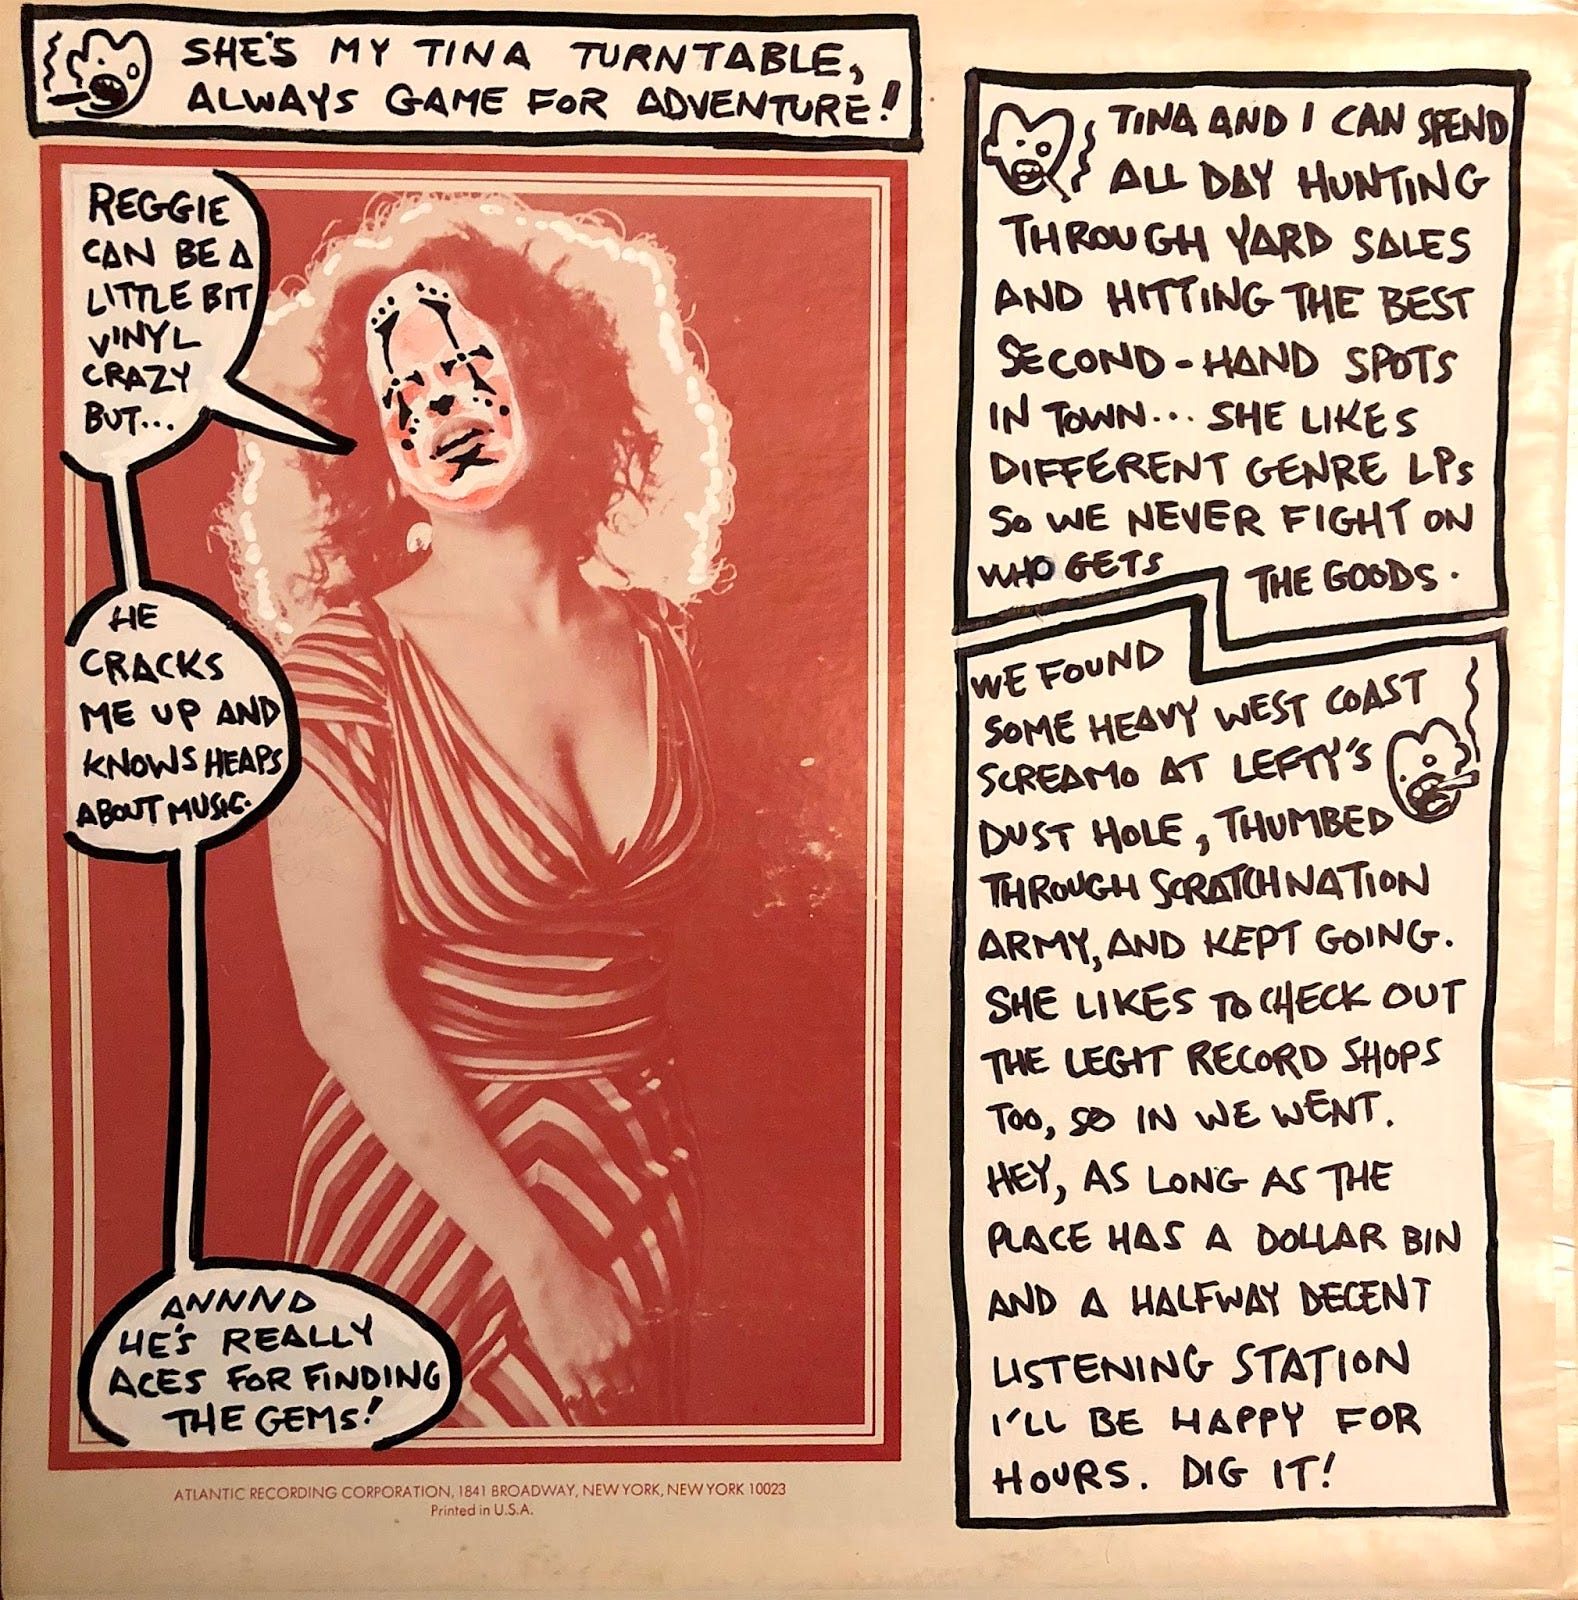 SHE'S MY TINA TURNTABLE,
ALWAYS GAME FOR ADVENTURE!
REGGIE
CAN BE A
LITTLE BIT
VINYL
CRAZY
BUT...
HE
CRACKS
ME UP AND
KNOWS HEAPS
ABOUT MUSIC.
ANNND
HE'S REALLY
ACES FOR FINDING
THE GEMS!
ATLANTIC RECORDING CORPORATION, 1841 BROADWAY, NEW YORK, NEW YORK 10023
Printed in U.S.A.
TINA AND I CAN SPEND
ALL DAY HUNTING
THROUGH YARD SALES
AND HITTING THE BEST
SECOND-HAND SPOTS
IN TOWN... SHE LIKES
DIFFERENT GENRE LPs
SO WE NEVER FIGHT ON
WHO GETS THE GOODS.
WE FOUND
SOME HEAVY WEST COAST
SCREAMO AT LEFTY'S
DUST HOLE, THUMBED
THROUGH SCRATCH NATION
ARMY, AND KEPT GOING.
SHE LIKES TO CHECK OUT
THE LEGIT RECORD SHOPS
TOO, SO IN WE WENT.
HEY, AS LONG AS THE
PLACE HAS A DOLLAR BIN
AND A HALFWAY DECENT
LISTENING STATION
I'LL BE HAPPY FOR
HOURS. DIG IT!